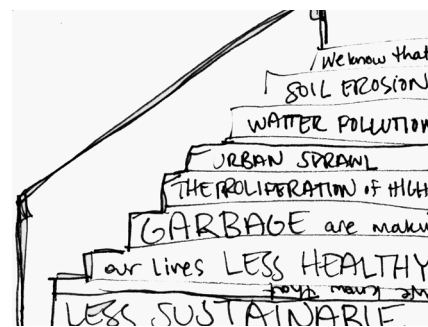 We know that
SOIL EROSION
WATTER POLLUTION
URBAN SPRAWL
THE PROLIFERATION OF HIGH
GARBAGE are makin
our lives LESS HEALTHY
We know that
LESS SUSTAINABLE